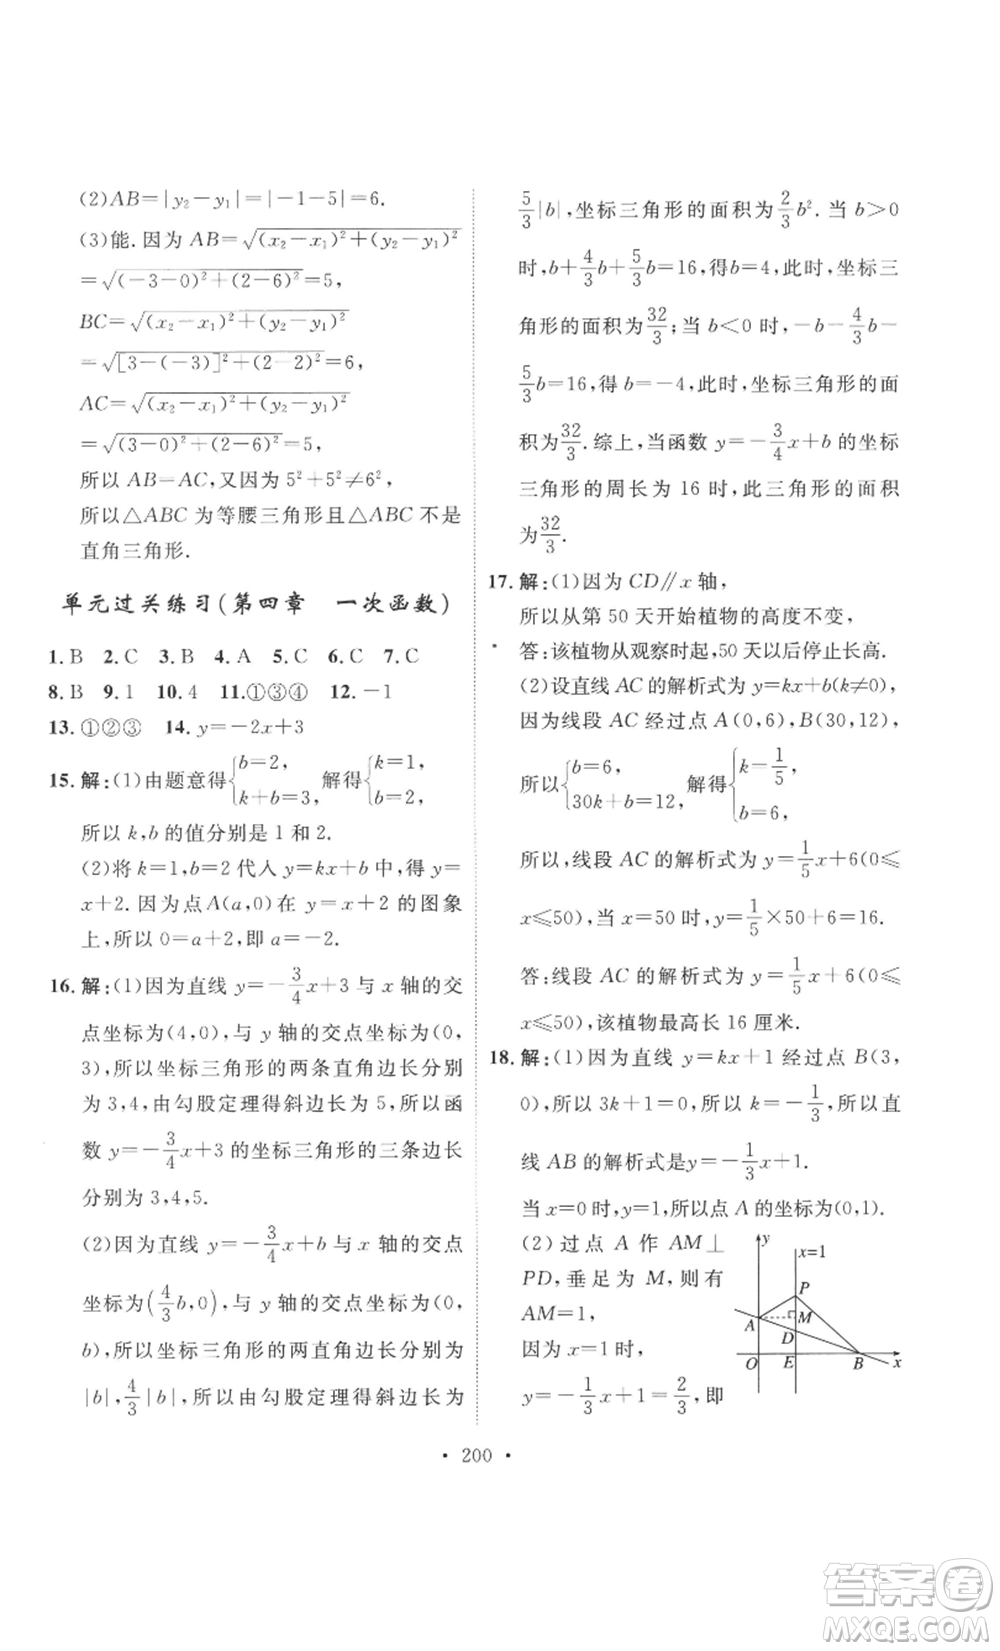 (2)AB=|y₂-y₁|=|-1-5|=6.
(3)能.因为 AB=√((x₂-x₁)²+(y₂-y₁)²)
=√((-3-0)²+(2-6)²)=5,
BC=√((x₂-x₁)²+(y₂-y₁)²)
=√([3-(-3)]²+(2-2)²)=6,
AC=√((x₂-x₁)²+(y₂-y₁)²)
=√((3-0)²+(2-6)²)=5,
所以 AB=AC,又因为 5²+5²≠6²,
所以△ABC 为等腰三角形且△ABC 不是
直角三角形.
单元过关练习(第四章 一次函数)
1.B 2.C 3.B 4.A 5.C 6.C 7.C
8.B 9.1 10.4 11.①③④ 12.-1
13.①②③ 14.y=-2x+3
15.解:(1)由题意得{b=2, k+b=3, 解得{k=1, b=2,
所以 k,b 的值分别是 1 和 2.
(2)将 k=1,b=2 代入 y=kx+b 中,得 y=
x+2. 因为点A(a,0)在 y=x+2 的图象
上,所以 0=a+2,即 a=-2.
16.解:(1)因为直线 y=-3/4x+3 与 x 轴的交
点坐标为(4,0),与 y 轴的交点坐标为(0,
3),所以坐标三角形的两条直角边长分别
为 3,4,由勾股定理得斜边长为 5,所以函
数 y=-3/4x+3 的坐标三角形的三条边长
分别为 3,4,5.
(2)因为直线 y=-3/4x+b 与 x 轴的交点
坐标为(4/3b,0),与 y 轴的交点坐标为(0,
b),所以坐标三角形的两直角边长分别为
|b|,4/3|b|,所以由勾股定理得斜边长为
5/3|b|,坐标三角形的面积为2/3b². 当 b>0
时,b+4/3b+5/3b=16,得b=4,此时,坐标三
角形的面积为32/3;当 b<0 时,-b-4/3b-
5/3b=16,得 b=-4,此时,坐标三角形的面
积为32/3.综上,当函数 y=-3/4x+b 的坐标
三角形的周长为 16 时,此三角形的面积
为32/3.
17.解:(1)因为 CD∥x 轴,
所以从第 50 天开始植物的高度不变,
答:该植物从观察时起,50 天以后停止长高.
(2)设直线 AC 的解析式为 y=kx+b(k≠0),
因为线段 AC 经过点 A(0,6),B(30,12),
所以{b=6, 30k+b=12, 解得{k-1/5 b=6,
所以,线段 AC 的解析式为 y=1/5x+6(0≤
x≤50),当 x=50 时,y=1/5×50+6=16.
答:线段 AC 的解析式为 y=1/5x+6(0≤
x≤50),该植物最高长 16 厘米.
18.解:(1)因为直线 y=kx+1 经过点 B(3,
0),所以 3k+1=0,解得 k=-1/3,所以直
线 AB 的解析式是y=-1/3x+1.
当 x=0 时,y=1,所以点 A 的坐标为(0,1).
(2)过点 A 作 AM⊥
PD,垂足为 M,则有
AM=1,
因为 x=1 时,
y=-1/3x+1=2/3,即
y
x=1
P
A
M
D
O
E
B
x
· 200 ·
答案卷
MXQE.COM